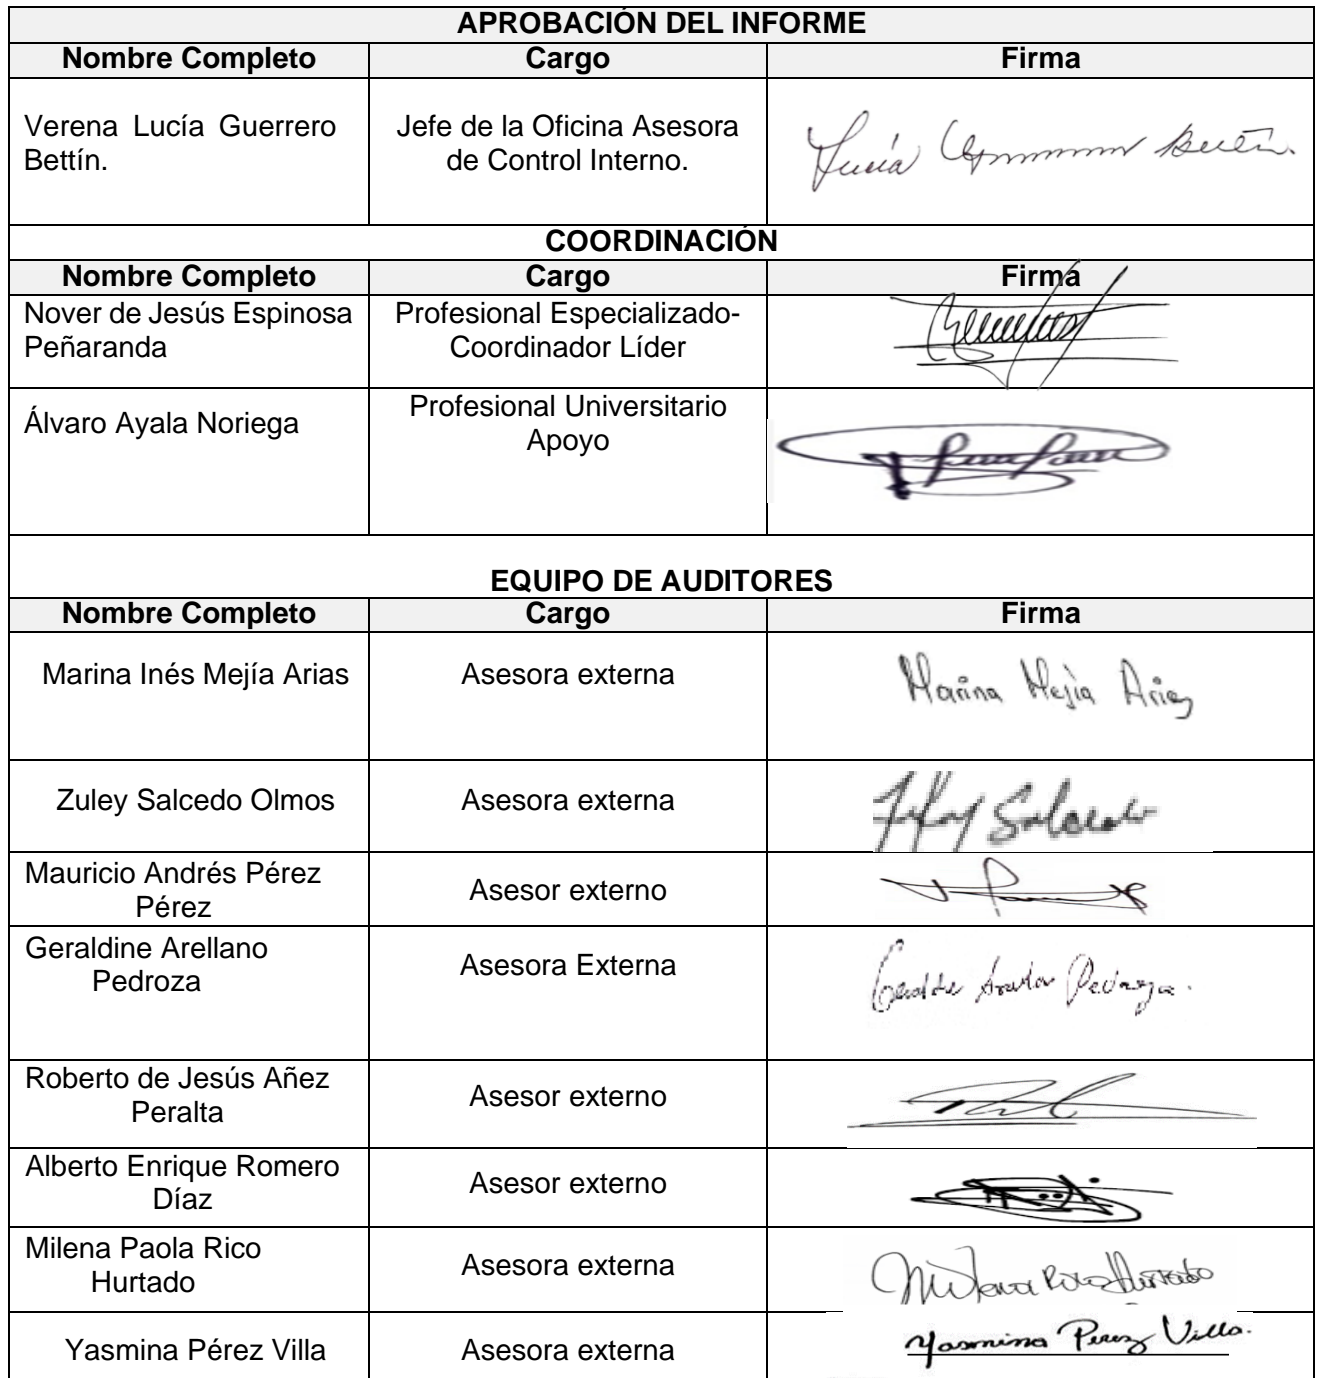 APROBACIÓN DEL INFORME
Nombre Completo Cargo Firma
Verena Lucía Guerrero Bettín.
Jefe de la Oficina Asesora de Control Interno.
Lucía Bettín.
COORDINACIÓN
Nombre Completo Cargo Firma
Nover de Jesús Espinosa Peñaranda
Profesional Especializado-
Coordinador Líder
Álvaro Ayala Noriega
Profesional Universitario
Apoyo
EQUIPO DE AUDITORES
Nombre Completo Cargo Firma
Marina Inés Mejía Arias Asesora externa Marina Mejía Arias
Zuley Salcedo Olmos Asesora externa Zuley Salcedo
Mauricio Andrés Pérez
Pérez
Asesor externo
Geraldine Arellano
Pedroza
Asesora Externa
Roberto de Jesús Añez
Peralta
Asesor externo
Alberto Enrique Romero
Díaz
Asesor externo
Milena Paola Rico
Hurtado
Asesora externa
Milena Rico Hurtado
Yasmina Pérez Villa Asesora externa Yasmina Perez Villa.